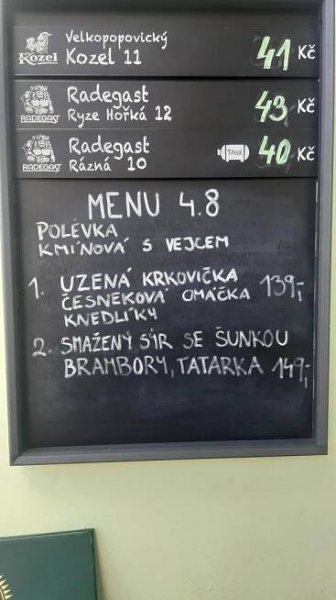 Velkopopovický
Kozel 11 41 Kč
Kozel
Radegast
Ryze Hořká 12 43 Kč
RADEGAST
Radegast
Rázná 10 TANK 40 Kč
RADEGAST
MENU 4.8
POLÉVKA
KMÍNOVÁ S VEJCEM
1. UZENÁ KRKOVIČKA 139,-
ČESNEKOVÁ OMÁČKA
KNEDLÍKY
2. SMAŽENÝ SÝR SE ŠUNKOU
BRAMBORY, TATARKA 149,-